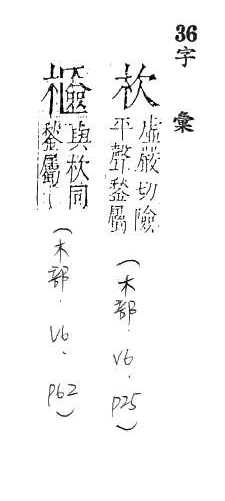 36
字彙
杴
虛嚴切險
平聲鍫屬
(木部．V6．P25)
與杴同
鍫屬
(木部．V6．P62)